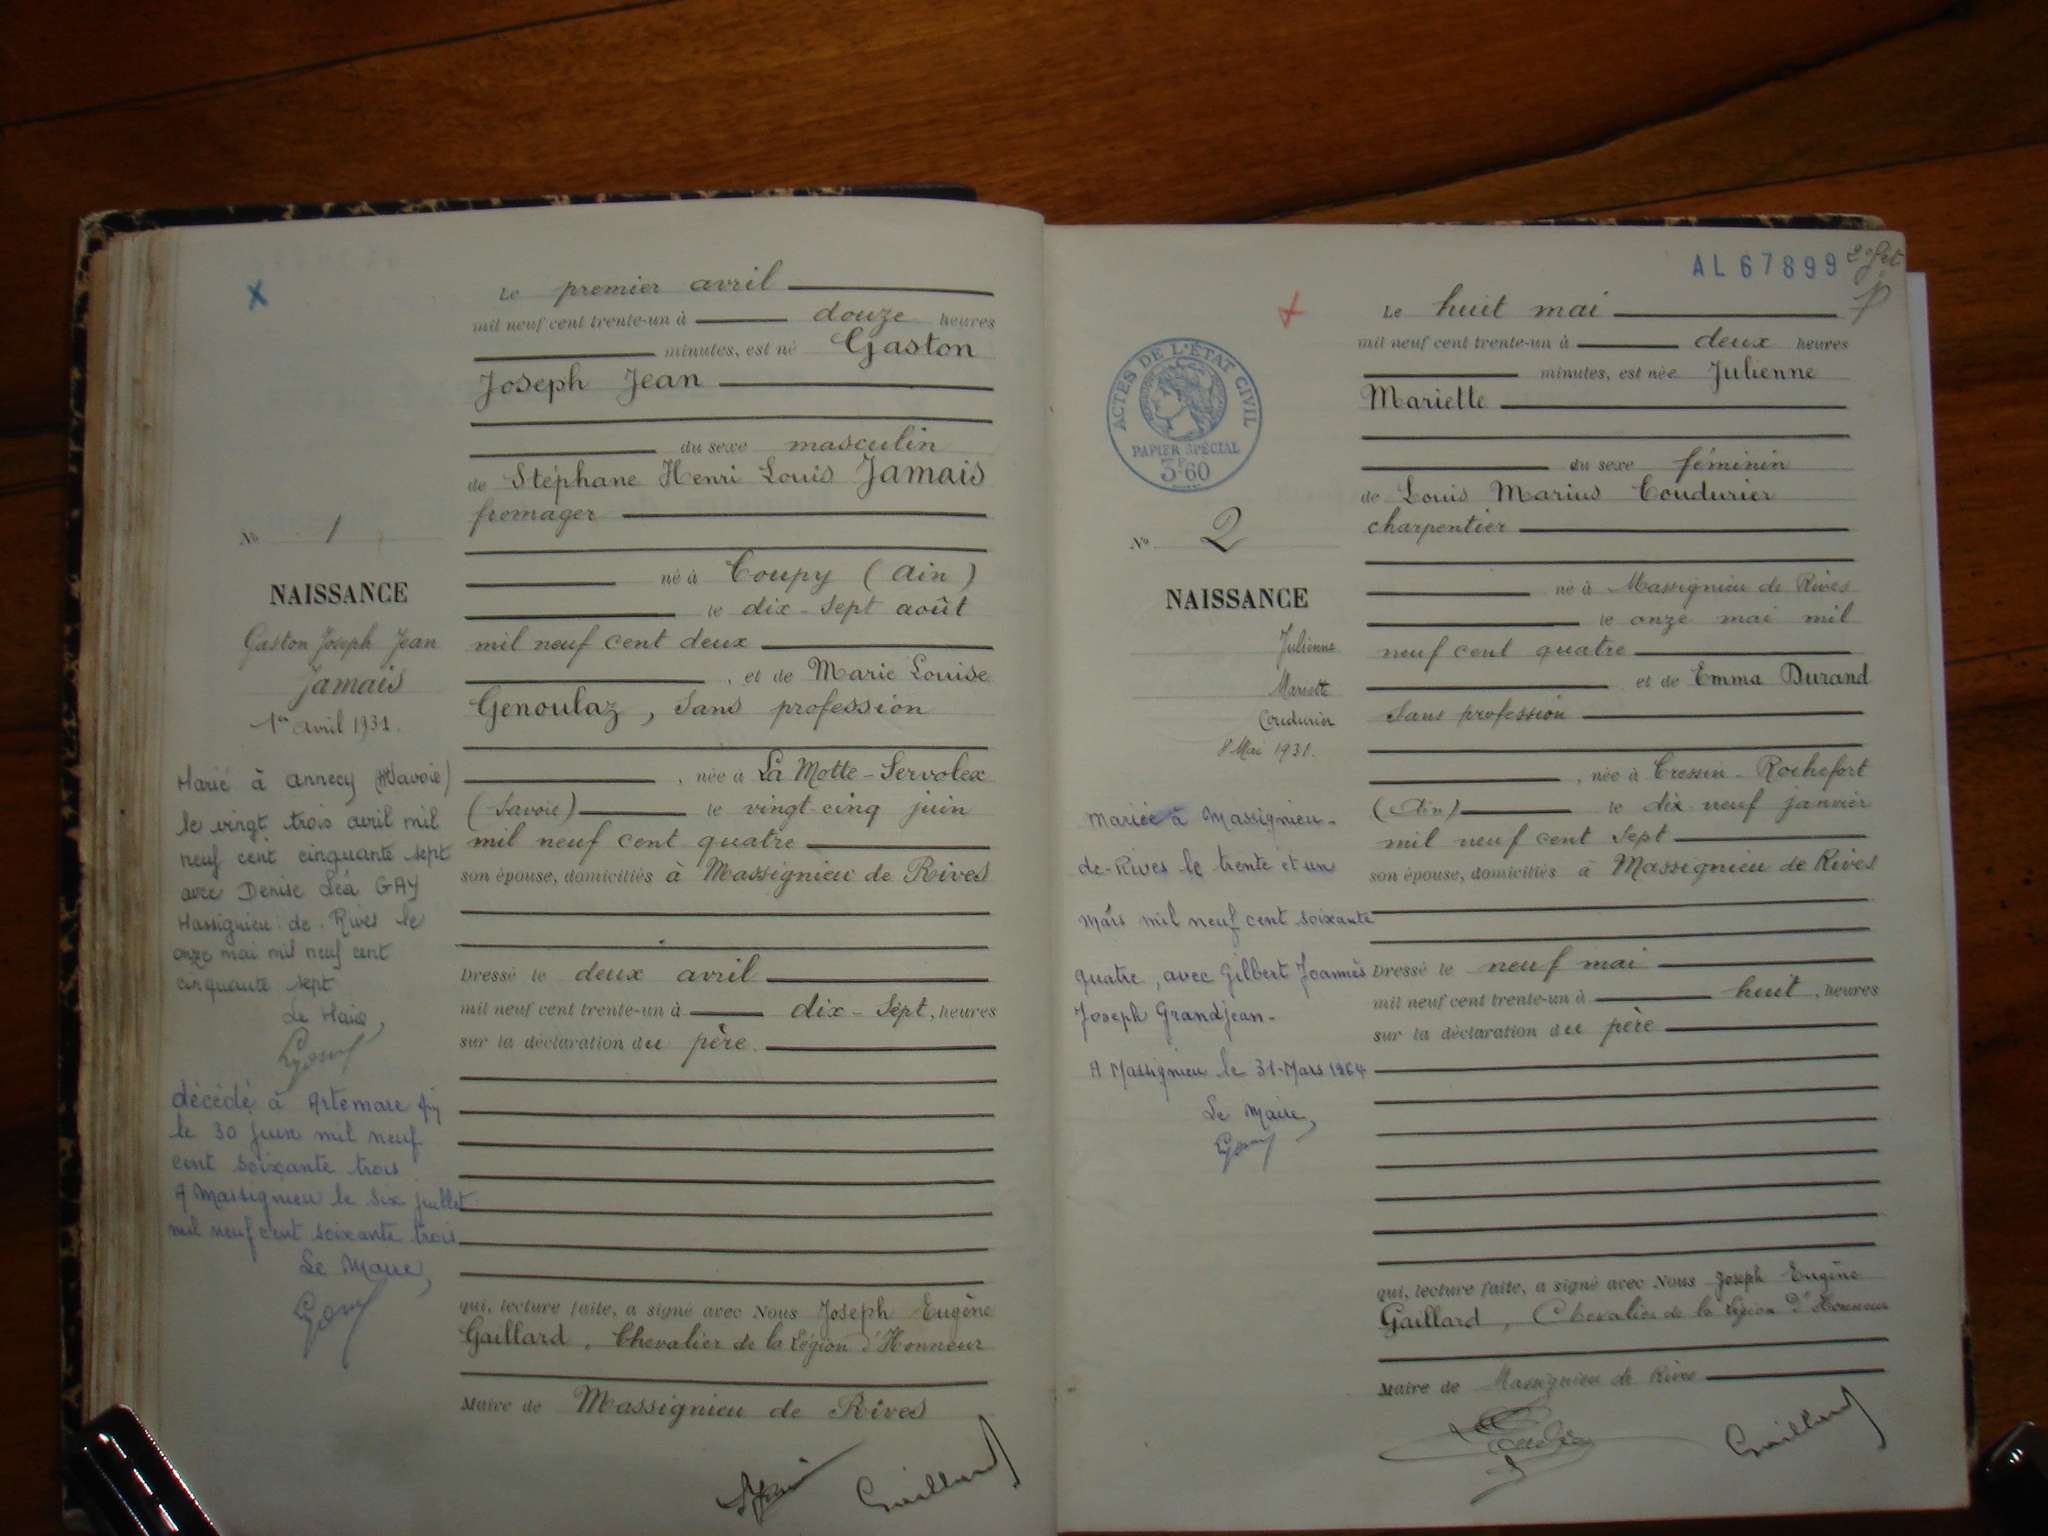 Le premier avril
mil neuf cent trente-un à douze heures
minutes, est né Gaston
Joseph Jean
du sexe masculin
de Stéphane Henri Louis Jamais
fromager
né à Coupy (Ain)
le dix-sept août
mil neuf cent deux
, et de Marie Louise
Genoulaz, sans profession
, née à La Motte-Servolex
(Savoie) le vingt-cinq juin
mil neuf cent quatre
son épouse, domiciliés à Massignieu de Rives
Dressé le deux avril
mil neuf cent trente-un à dix-sept, heures
sur la déclaration du père.
qui, lecture faite, a signé avec Nous Joseph Eugène
Gaillard, Chevalier de la Légion d'Honneur
Maire de Massignieu de Rives
Gaillard
No 1
NAISSANCE
Gaston Joseph Jean
Jamais
1er avril 1931.
Marié à Annecy (H Savoie)
le vingt trois avril mil
neuf cent cinquante sept
avec Denise Léa GAY
Massignieu de Rives le
onze mai mil neuf cent
cinquante sept
Le Maire,
décédé à Artemare
le 30 juin mil neuf
cent soixante trois
A Massignieu le six juillet
mil neuf cent soixante trois
Le Maire,
AL 67899
Le huit mai
mil neuf cent trente-un à deux heures
minutes, est née Julienne
Mariette
du sexe féminin
de Louis Marius Coudurier
charpentier
né à Massignieu de Rives
le onze mai mil
neuf cent quatre
et de Emma Durand
sans profession
, née à Cressin-Rochefort
(Ain) le dix neuf janvier
mil neuf cent sept
son épouse, domiciliés à Massignieu de Rives
Dressé le neuf mai
mil neuf cent trente-un à huit, heures
sur la déclaration du père
qui, lecture faite, a signé avec Nous Joseph Eugène
Gaillard, Chevalier de la Légion d'Honneur
Maire de Massignieu de Rives
Gaillard
ACTES DE L'ÉTAT CIVIL
PAPIER SPÉCIAL
3F60
No 2
NAISSANCE
Julienne
Mariette
Coudurier
8 Mai 1931.
Mariée à Massignieu-
de-Rives le trente et un
mars mil neuf cent soixante
quatre, avec Gilbert Joannès
Joseph Grandjean-
A Massignieu le 31-Mars 1964
Le Maire,